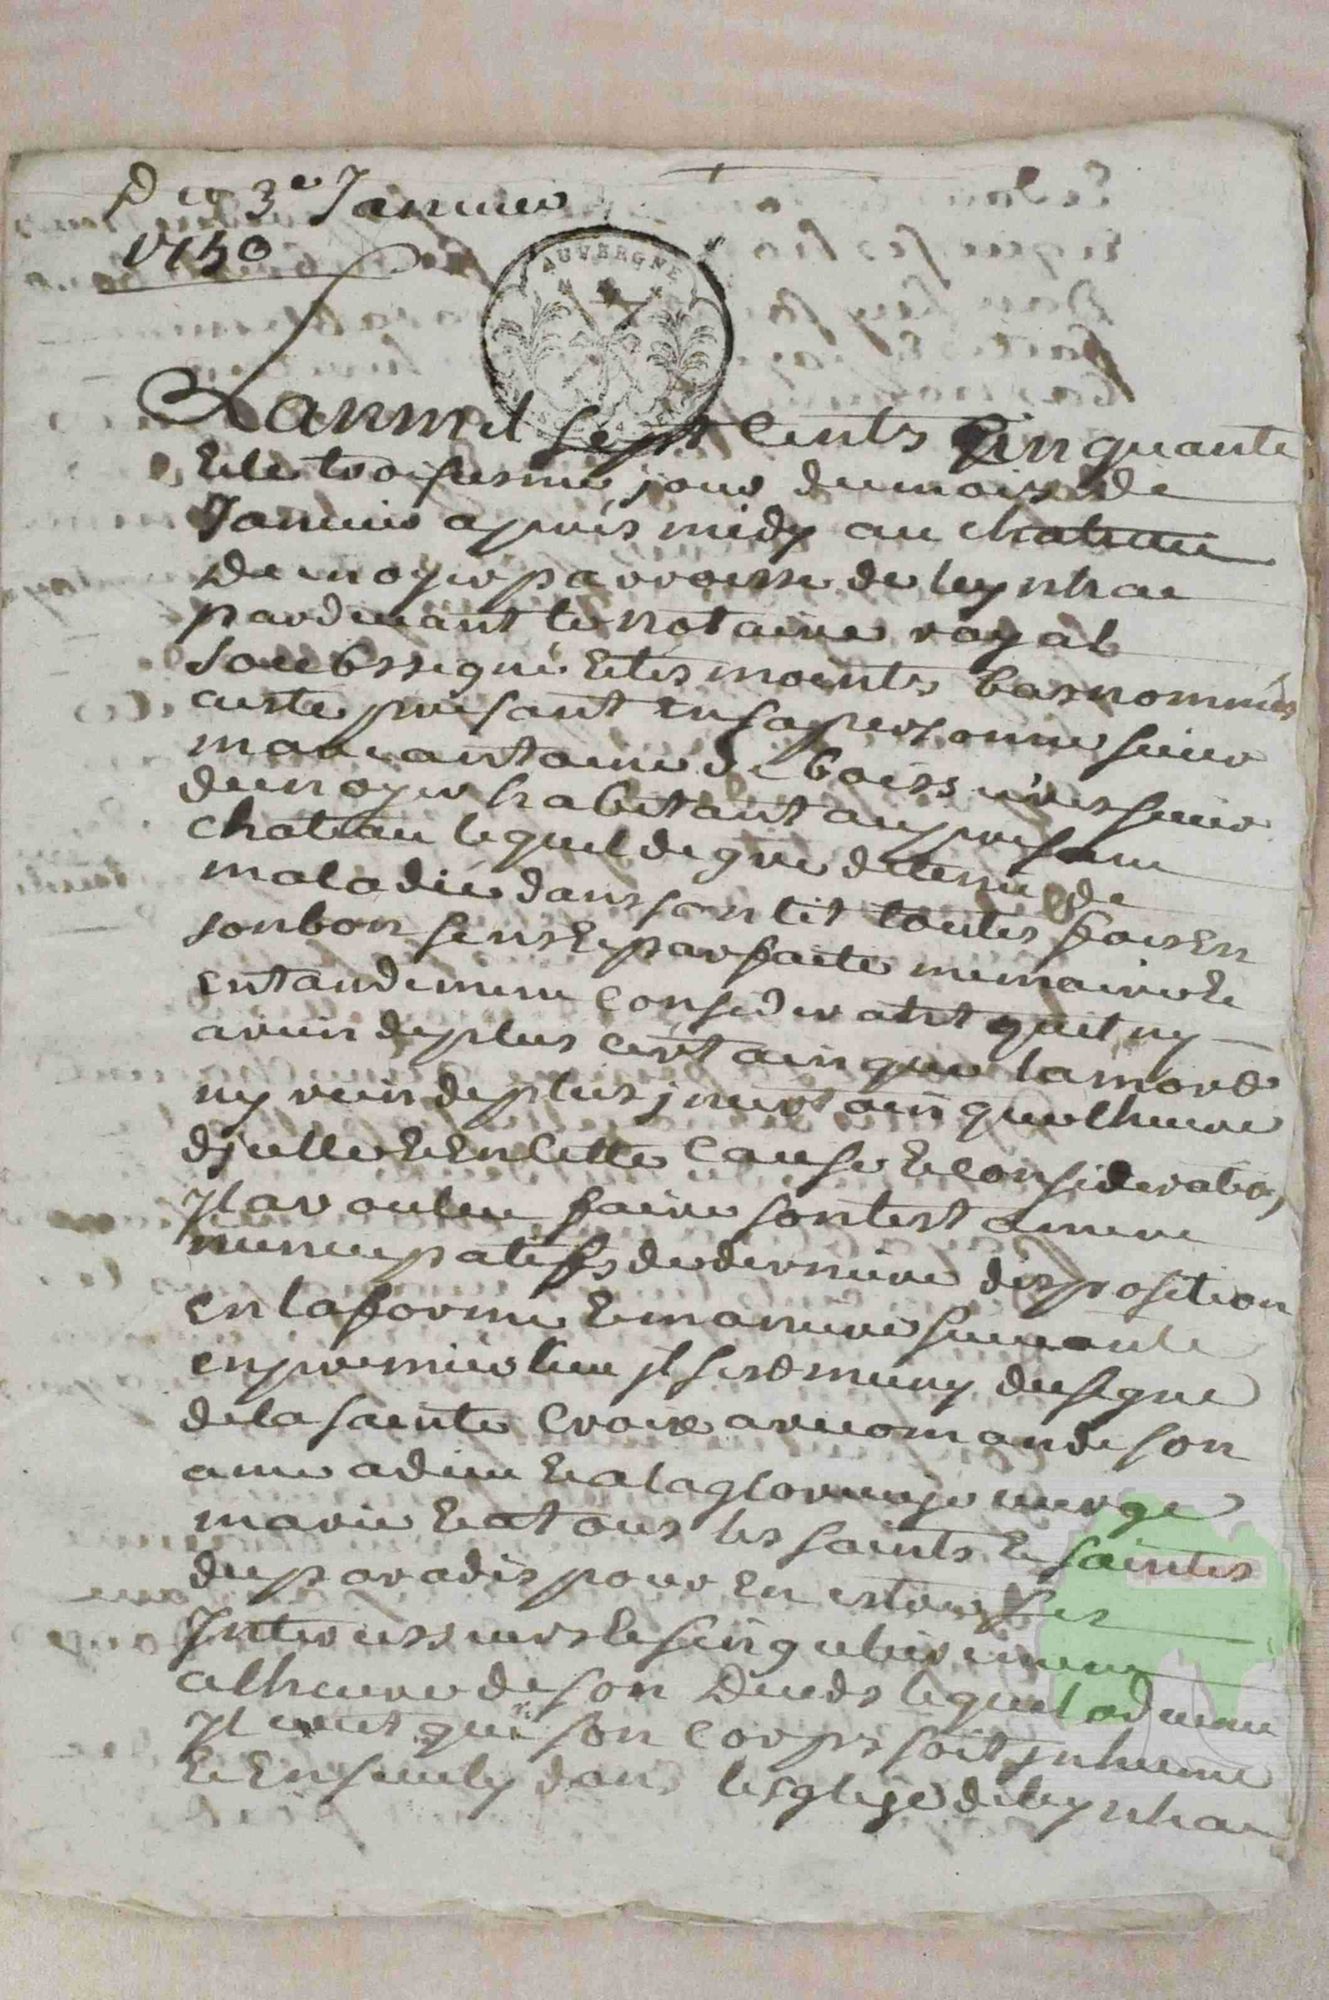 Du 3e Janvier
1750
AUVERGNE
Lan mil sept cents cinquante
Et le troisiesme jour du mois de
Janvier apres midy au chateau
du noyer parroisse de leynhac
pardevant le notaire royal
soubssigné Et les moints bas nommés
a esté presant En sa personne sieur
marc antoine de boissieres sieur
du noyer habitant au presant
chateau lequel de gre detenu de
maladie dans son lit toutes fois En
son bon sens Et parfaite memoire Et
entandement considerant quil ny
a rien de plus certain que la mord
ny rien de plus jncertain que lheure
djcelle Et En cette cause Et consideration
Jl a voulu faire son testament
nuncupatif de derniere disposition
en la forme Et maniere suivante
en premier lieu jl sest muny du signe
de la sainte Croix a recomande son
ame a dieu Et a la glorieuse vierge
marie Et a tous les saints Et saintes
du paradis pour En estre ses
Jntercesseurs Et singulierement
a lheure de son deceds lequel advenu
Jl veut que son corps soit jnhumé
Et Ensevely dans lesglise de leynhac